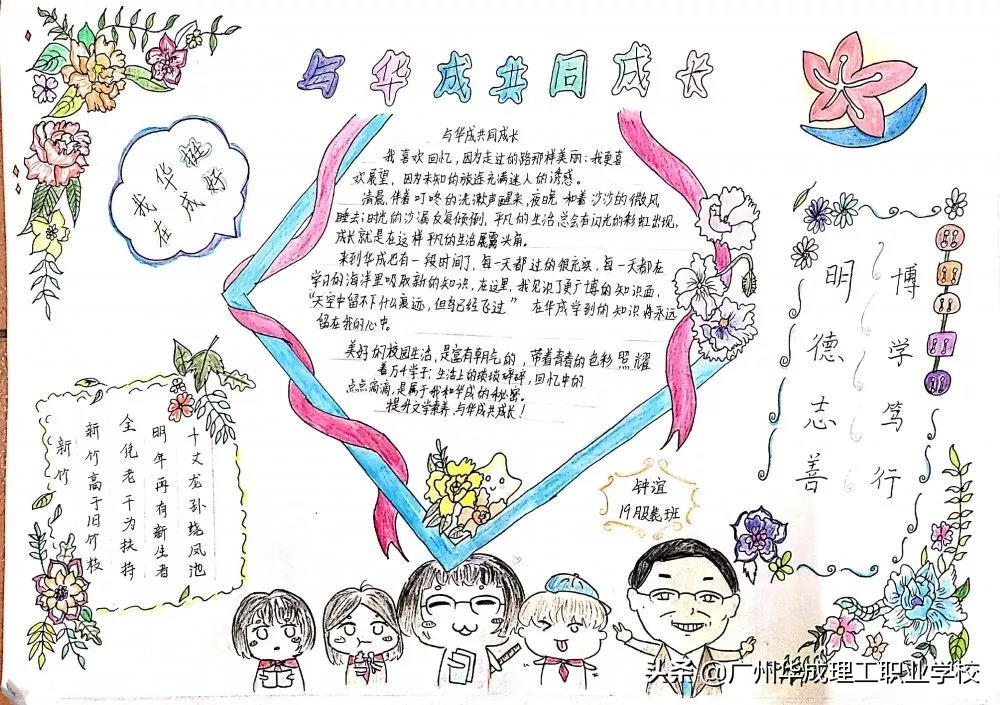 与华成共同成长
我在华成挺好
与华成共同成长
我喜欢回忆，因为走过的路那样美丽；我更喜
欢展望，因为未知的旅途充满迷人的诱惑。
清晨，伴着叮咚的洗漱声醒来，夜晚，和着沙沙的微风
睡去；时光的沙漏反复倾倒，平凡的生活总会有闪光的彩虹出现，
成长就是在这样平凡的生活展露头角。
来到华成也有一段时间了，每一天都过的很充实，每一天都在
学习的海洋里吸取新的知识，在这里，我见识了更广博的知识面，
“天空中留不下什么痕迹，但鸟已经飞过” 在华成学到的知识将永远
留在我的心中。
美好的校园生活，是富有朝气的，带着青春的色彩照耀
着万千学子；生活上的琐琐碎碎，回忆中的
点点滴滴，是属于我和华成的秘密。
提升文学素养，与华成共成长！
博学笃行
明德志善
新竹
新竹高于旧竹枝
全凭老干为扶持
明年再有新生者
十丈龙孙绕凤池
钟谊
19服装班
头条@广州华成理工职业学校